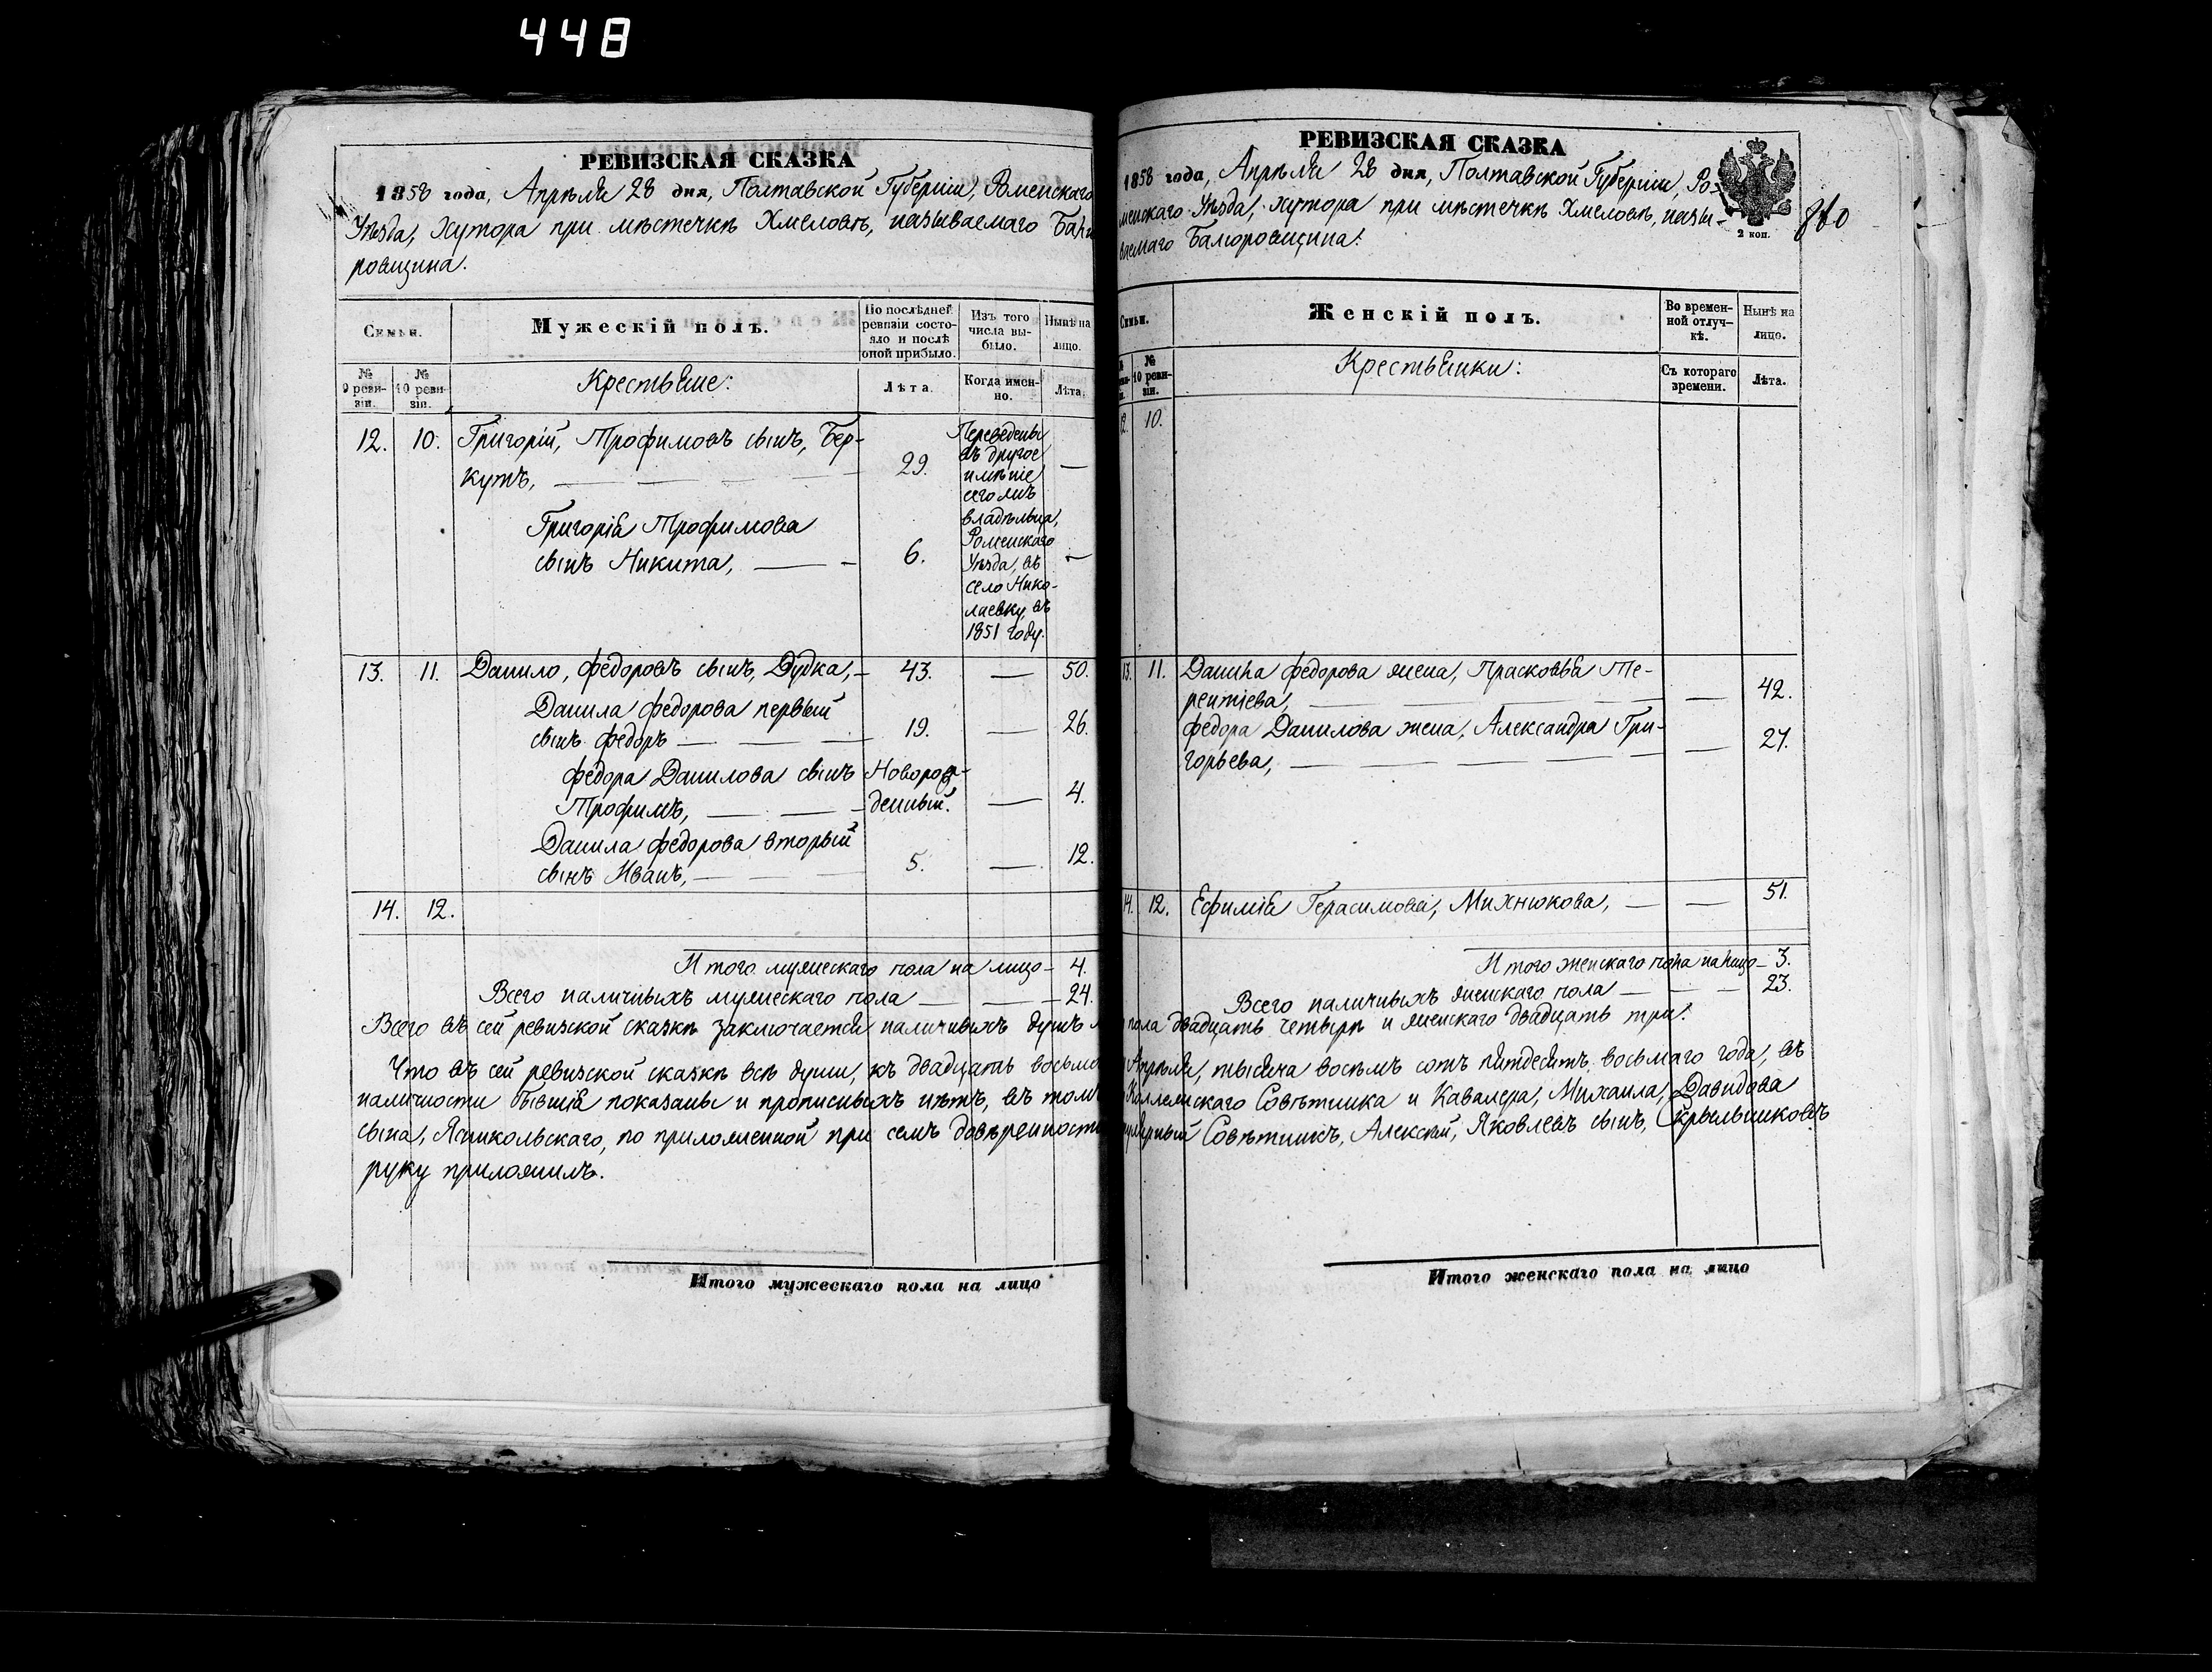 448
РЕВИЗСКАЯ СКАЗКА
1858 года, Апрѣля 28 дня, Полтавской Губерніи, Роменскаго
Уѣзда, хутора при мѣстечкѣ Хмеловѣ, называемаго
ровщина.
Семьи.
Мужескій полъ.
По послѣдней ревизіи состояло и послѣ оной прибыло.
Изъ того числа выбыло.
Нынѣ на лицо.
№ 9 ревизіи.
№ 10 ревизіи.
Крестьяне:
Лѣта.
Когда именно.
Лѣта.
12. 10. Григорій, Трофимовъ сынъ, Бер-
кутъ, 29. —
Григорія Трофимова
сынъ Никита, 6. —
Переведены
въ другое
имѣніе
сего жъ
владѣльца,
Роменскаго
Уѣзда, въ
село Нико-
лаевку въ
1851 году.
13. 11. Данило, Федоровъ сынъ, Дудка, 43. — 50.
Данила Федорова первый
сынъ Федоръ 19. — 26.
Федора Данилова сынъ Новорож-
Трофимъ, денный. — 4.
Данила Федорова вторый
сынъ Иванъ, 5. — 12.
14. 12.
Итого мужескаго пола на лицо 4.
Всего наличныхъ мужескаго пола 24.
Всего въ сей ревизской сказкѣ заключается наличныхъ душъ
Что въ сей ревизской сказкѣ всѣ души, къ двадцать восьмо
наличности бывшія показаны и прописныхъ нѣтъ, въ томъ
сына, Ясникольскаго, по приложенной при семъ довѣренности
руку приложилъ.
Итого мужескаго пола на лицо
РЕВИЗСКАЯ СКАЗКА
1858 года, Апрѣля 28 дня, Полтавской Губерніи, Ро-
менскаго Уѣзда, хутора при мѣстечкѣ Хмеловѣ, назы-
ваемаго
2 коп.
Семьи.
Женскій полъ.
Во временной отлучкѣ.
Нынѣ на лицо.
№ 10 ревизіи.
Крестьянки:
Съ котораго времени.
Лѣта.
12. 10.
13. 11. Данила Федорова жена, Прасковья Те-
рентіева, — 42.
Федора Данилова жена, Александра Гри-
горьева, — 27.
14. 12. Ефимія Герасимова, Михнюкова, — 51.
Итого женскаго пола на лицо 3.
Всего наличныхъ женскаго пола 23.
пола двадцать четыре и женскаго двадцать три.
Апрѣля, тысяча восемъ сотъ пятдесятъ восьмаго года, въ
Коллежскаго Совѣтника и Кавалера, Михаила, Давидова
Совѣтникъ, Алексѣй, Яковлевъ сынъ, Крыльниковъ
Итого женскаго пола на лицо